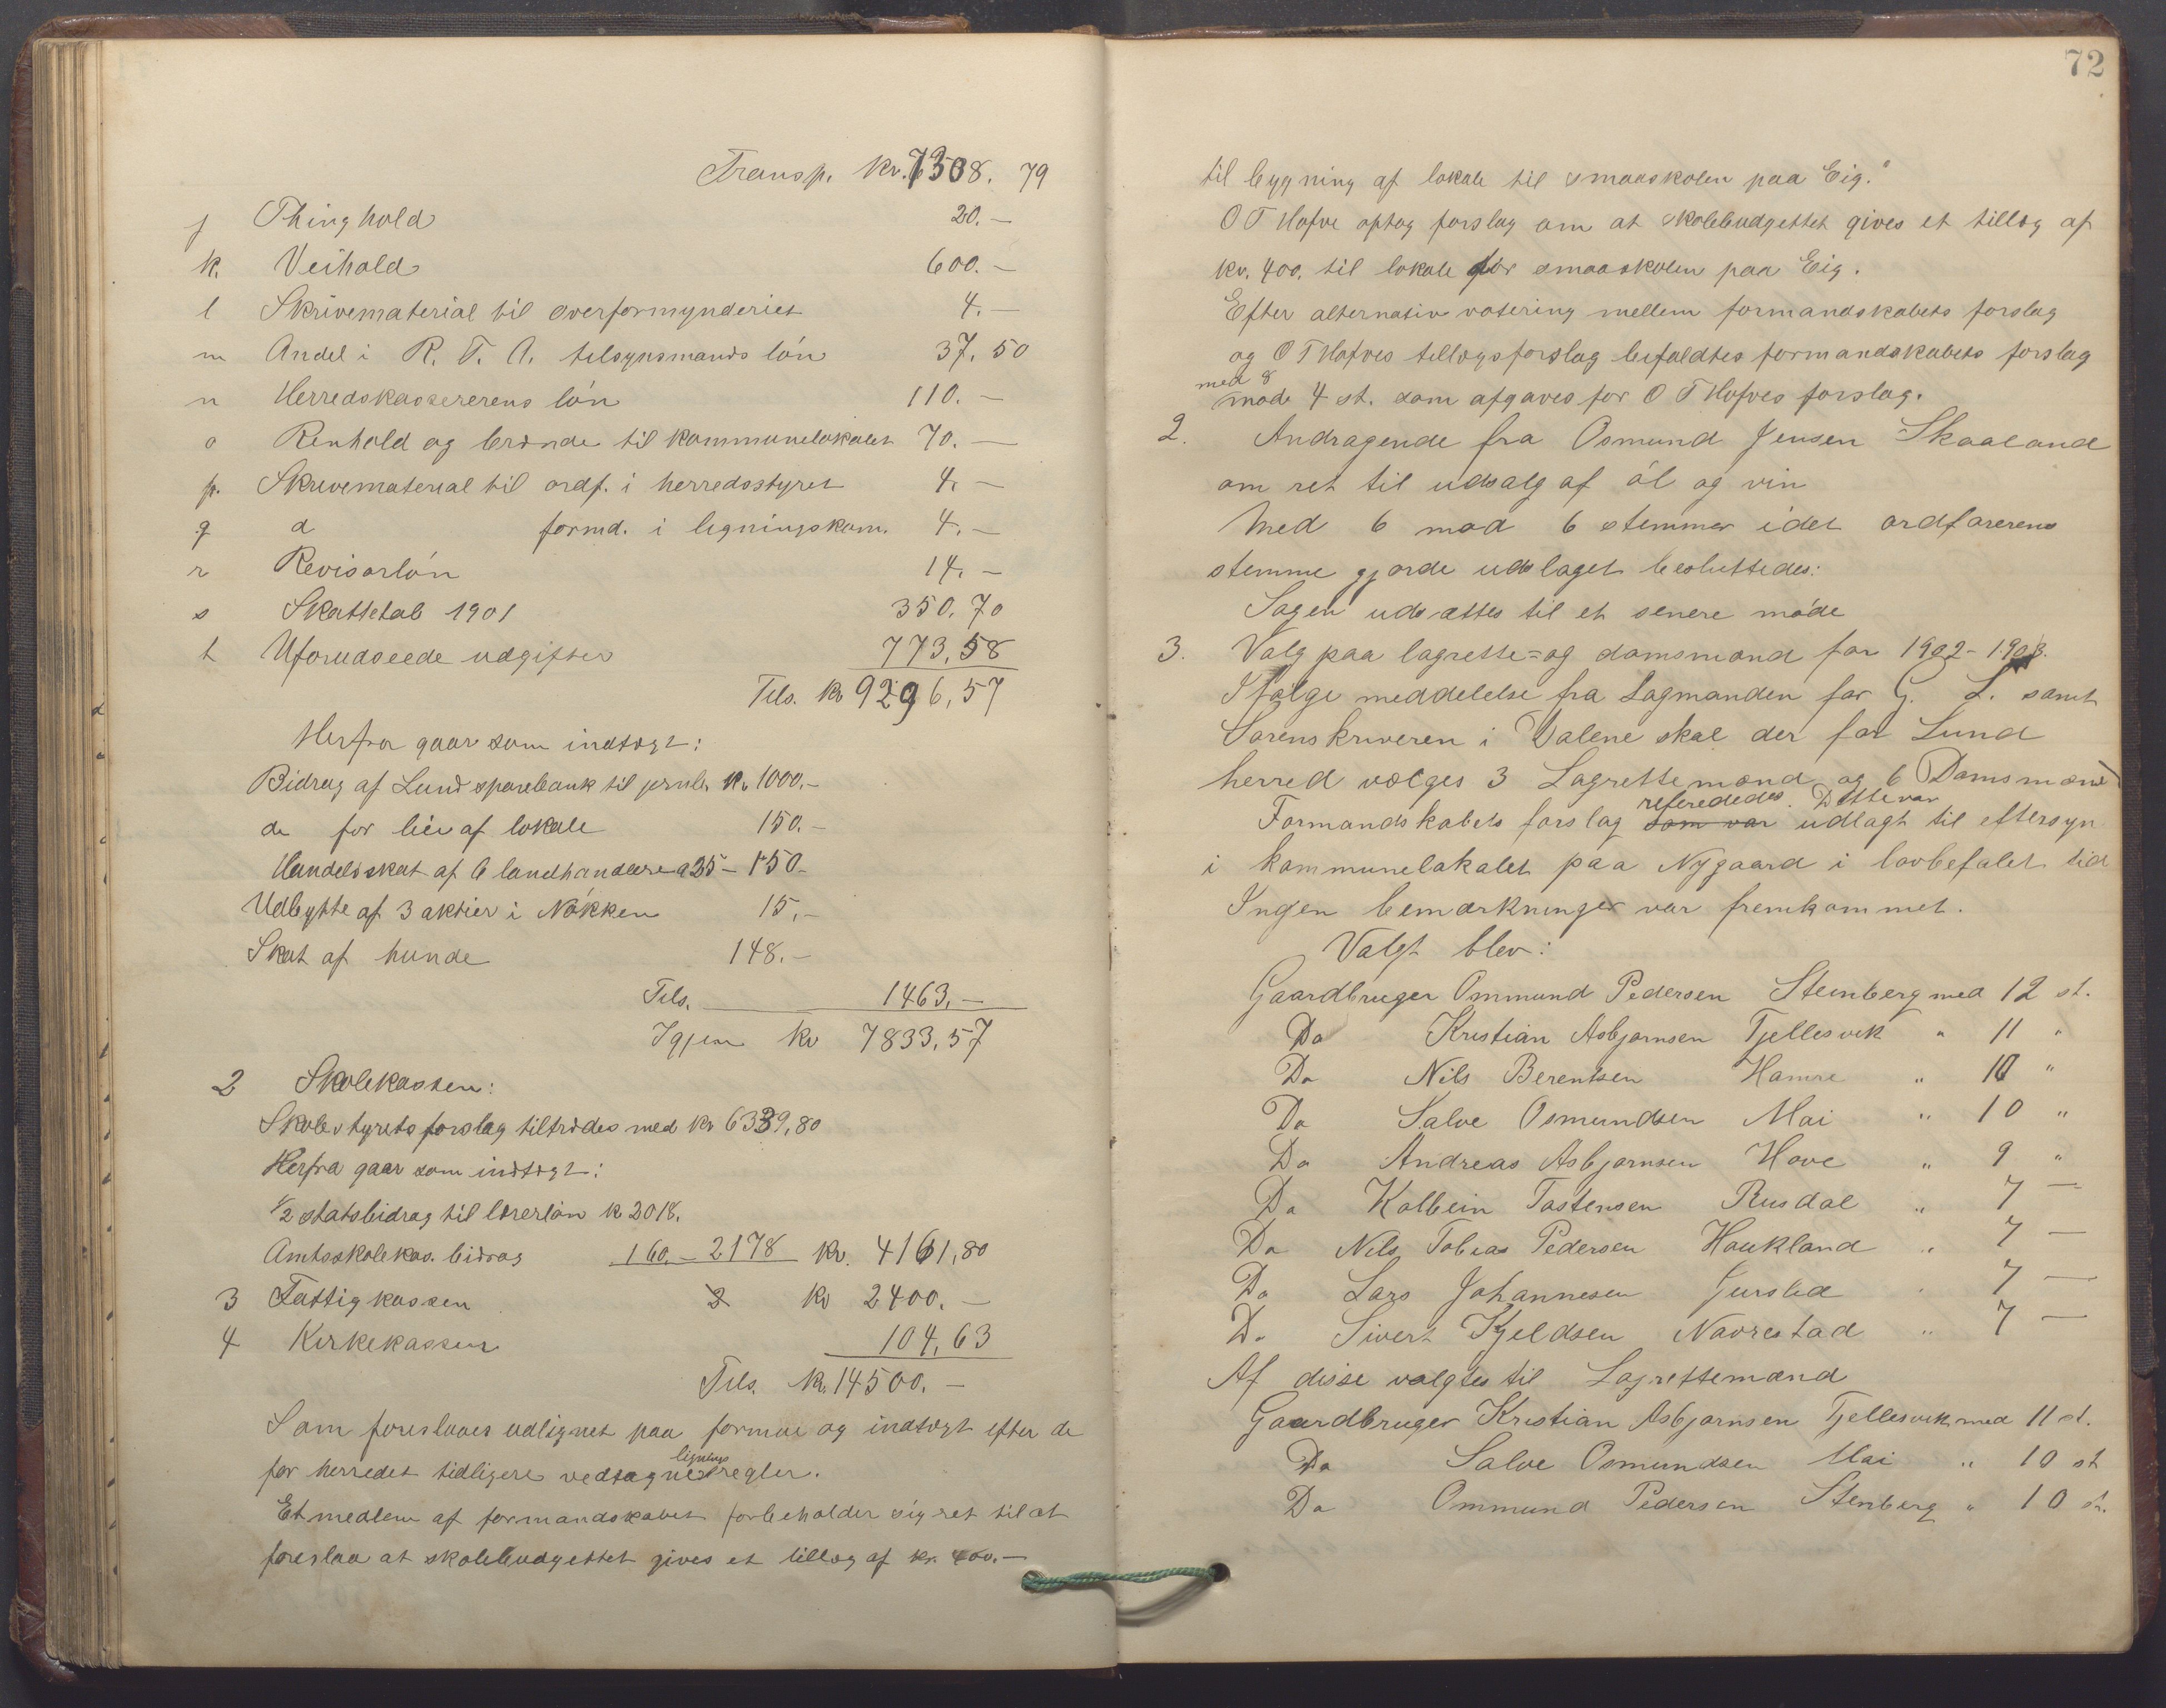 Transp. kr. 7308. 79
j Thinghold 20. —
k. Veihold 600. —
l Skrivematerial til overformynderiet 4. —
m Andel i R. T. A. tilsynsmands løn 37. 50
n Herredskassererens løn 110. —
o Renhold og brænde til kommunelokalet 70. —
p. Skrivematerial til ordf. i herredsstyret 4. —
q d formd. i ligningskom. 4. —
r Revisorløn 14. —
s Skattetab 1901 350. 70
t Uforudseede udgifter 773,58
Tils. kr 9296,57
Herfra gaar som indtægt:
Bidrag af Lund sparebank til jernb. kr 1000.-
do for leie af lokale 150.-
Handelsskat af 6 landhandlere a 25 - 150-
Udbytte af 3 aktier i Nøkken 15,-
Skat af hunde 148.-
Tils. 1463. —
Igjen kr 7833,57
2 Skolekassen:
Skolestyrets forslag tiltrædes med kr 6339,80
Herfra gaar som indtægt:
1/2 statsbidrag til lærerløn kr 2018.
Amtsskolekas. bidrag 160. - 2178 kr. 4161,80
3 Fattigkassen kr 2400. —
4 Kirkekassen 104,63
Tils. kr. 14500. —
Som foreslaaes udlignet paa formue og indtægt efter de
lignings
for herredet tidligere vedtagne regler.
Et medlem af formandskabet forbeholder sig ret til at
foreslaa at skolebudgettet gives et tillæg af kr. 400. —
72
til bygning af lokale til smaaskolen paa Eig."
O T Hofve optog forslag om at skolebudgettet gives et tillæg af
kr. 400. til lokale for smaaskolen paa Eig.
Efter alternativ votering mellem formandskabets forslag
og O T Hofves tillægsforslag bifaldtes formandskabets forslag
med 8
mod 4 st. som afgaves for O T Hofves forslag.
2. Andragende fra Osmund Jensen Skaaland
om ret til udsalg af øl og vin
Med 6 mod 6 stemmer idet ordførerens
stemme gjorde udslaget besluttedes:
Sagen udsættes til et senere møde
3. Valg paa lagrette= og domsmænd for 1902-1903.
Ifølge meddelelse fra Lagmanden for G. L. samt
Sorenskriveren i Dalene skal der for Lund
herred vælges 3 Lagrettemænd og 6 Domsmænd
refereredes. Dette var
Formandskabets forslag som var udlagt til eftersyn
i kommunelokalet paa Nygaard i lovbefalet tid
Ingen bemærkninger var fremkommet.
Valgt blev:
Gaardbruger Ommund Pedersen Steinberg med 12 st.
Do Kristian Asbjørnsen Tjellesvik " 11 "
Do Nils Berentsen Hamre " 10 "
Do Salve Osmundsen Moi " 10 "
Do Andreas Asbjørnsen Hove " 9 "
Do Kolbein Tostensen Rusdal " 7 —
Do Nils Tobias Pedersen Haukland " 7 —
Do Lars Johannesen Gursled " 7 —
Do Sivert Kjeldsen Navrestad " 7 —
Af disse valgtes til Lagrettemænd
Gaardbruger Kristian Asbjørnsen Tjellesvik med 11 st.
Do Salve Osmundsen Moi " 10 st
Do Ommund Pedersen Stenberg " 10 st.